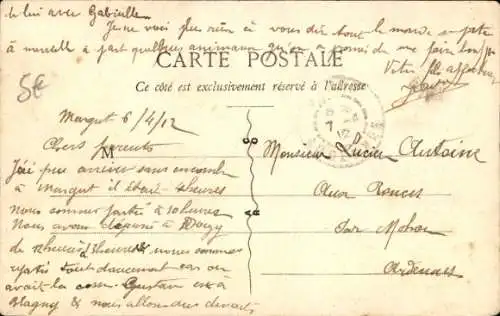 lui avec Gabrielle
Je ne vois plus rien à vous dire tout le monde se porte
à merveille à part quelques animaux
Votre fils
CARTE POSTALE
Ce côté est exclusivement réservé à l'adresse
5€
Margut 6/4/12
Chers parents
M
J'ai pu arriver sans encombre
à Margut il était 4 heures
nous sommes partis à 10 heures
Nous avons déposé à Douzy
de 12 heures à heures & nous sommes
repartis tout doucement car on
avait la Gustave est à
Blagny & nous allons
Monsieur Lucien Antoine
Aux
Par Mohon
Ardennes